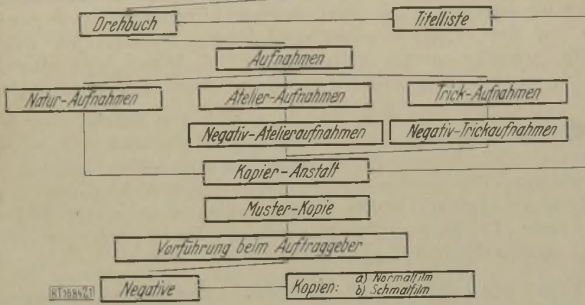 Drehbuch
Titelliste
Aufnahmen
Natur-Aufnahmen
Atelier-Aufnahmen
Trick-Aufnahmen
Negativ-Atelieraufnahmen
Negativ-Trickaufnahmen
Kopier-Anstalt
Muster-Kopie
Vorführung beim Auftraggeber
Negative
Kopien: a) Normalfilm
b) Schmalfilm